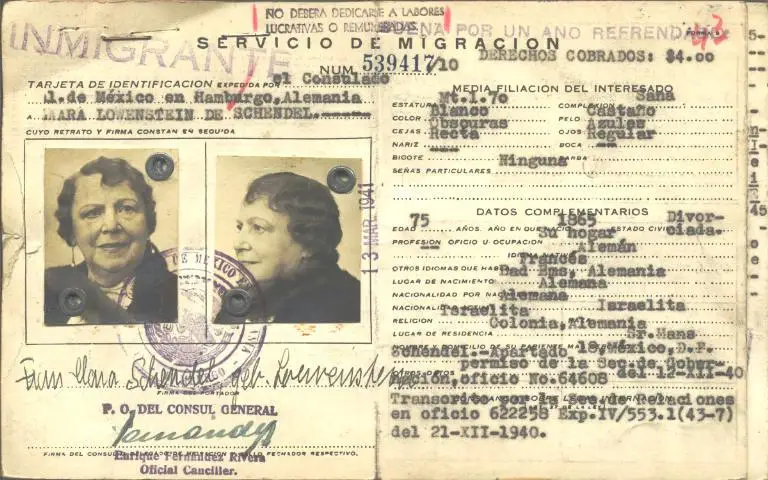 NO DEBERA DEDICARSE A LABORES
LUCRATIVAS O REMUNERADAS
BUENA POR UN AÑO REFRENDA
INMIGRANTE
SERVICIO DE MIGRACION
FORMA 5
43
NUM. 539417/10 DERECHOS COBRADOS: $4.00
TARJETA DE IDENTIFICACION EXPEDIDA POR el Consulado
de México en Hamburgo, Alemania
A LOWENSTEIN DE SCHENDEL.
CUYO RETRATO Y FIRMA CONSTAN EN SEGUIDA
13 MAR. 1941
DE MEXICO
Frau Clara Schendel geb. Loewenstein
FIRMA DEL PORTADOR
P. O. DEL CONSUL GENERAL
Enrique Fernández Rivera
Oficial Canciller.
MEDIA FILIACION DEL INTERESADO
ESTATURA Mt.1.70 COMPLEXION Sana
COLOR Blanco PELO Castaño
CEJAS Obscuras OJOS Azules
NARIZ Recta BOCA Regular
BIGOTE BARBA
SEÑAS PARTICULARES Ninguna
DATOS COMPLEMENTARIOS
EDAD 75 AÑOS. AÑO EN QUE NACIO 1865 ESTADO CIVIL Divor-
ciada.
PROFESION OFICIO U OCUPACION Su hogar
IDIOMA NATIVO Alemán
OTROS IDIOMAS QUE HABLA Francés
LUGAR DE NACIMIENTO Bad Ems, Alemania
NACIONALIDAD POR NACIMIENTO Alemana
NACIONALIDAD Alemana
RELIGION Israelita Israelita
LUGAR DE RESIDENCIA Colonia, Alemania
Sr. Hans
Schendel.-Apartado México, D.F.
permiso de la Sec. de Gober-
nación, oficio No. 64608 del 12-XII-40
Transcrito por S. de Relaciones
en oficio 622258 Exp.IV/553.1(43-7)
del 21-XII-1940.